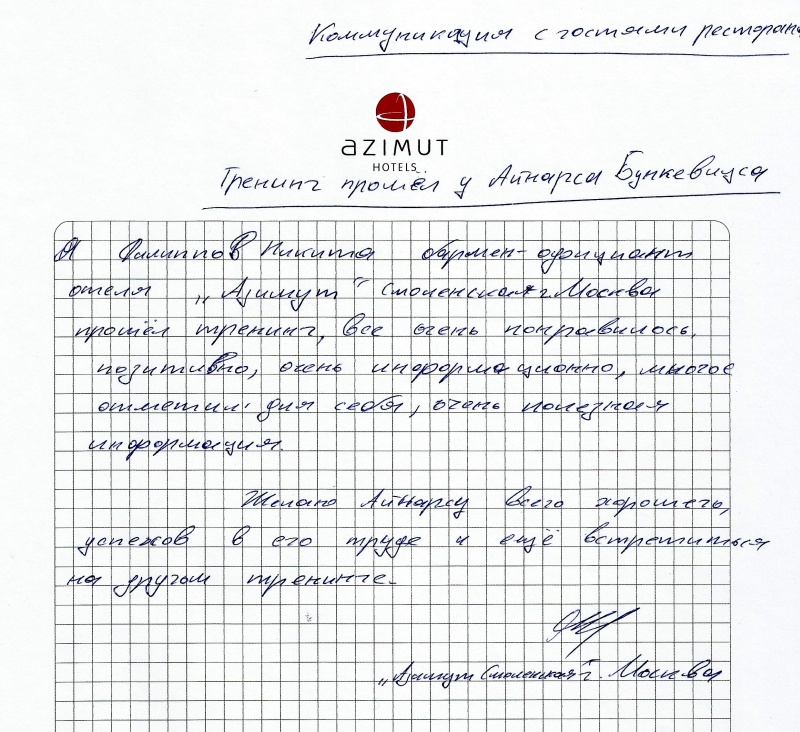 Коммуникация с гостями ресторана
azimut
HOTELS
Тренинг прошёл у Айнарса Бункевицса
Я Филиппов Никита бармен-официант
отеля „Азимут" Смоленская г. Москва
прошёл тренинг, все очень понравилось,
позитивно, очень информационно, многое
отметил для себя, очень полезная
информация.
Желаю Айнарсу всего хорошего,
успехов в его труде и ещё встретиться
на другом тренинге.
„Азимут Смоленская" г. Москва